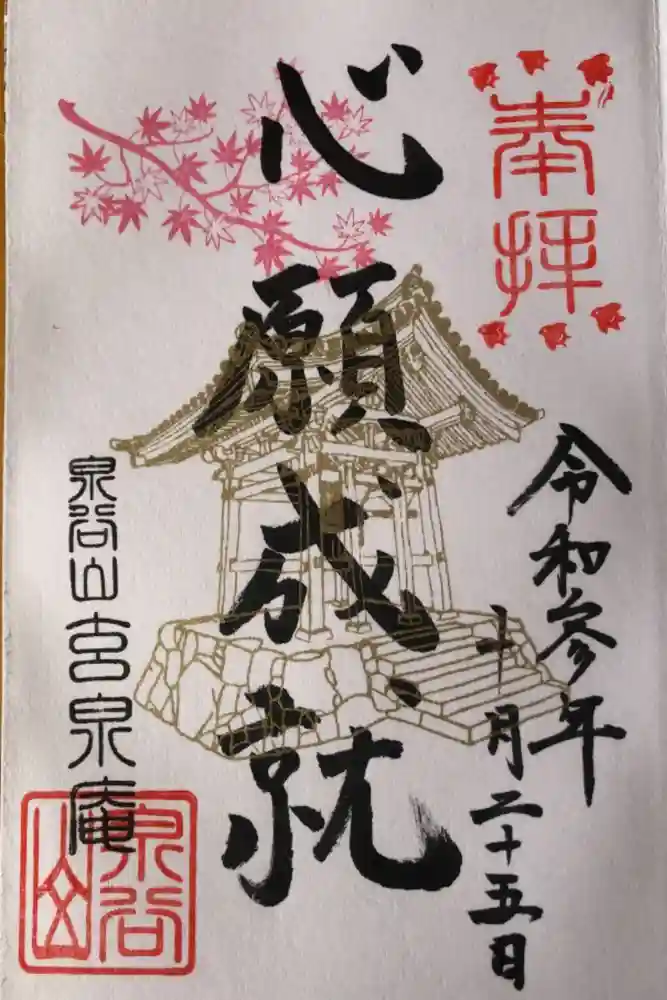 奉拝
令和参年
十月二十五日
心願成就
泉谷山 泉庵
泉谷山